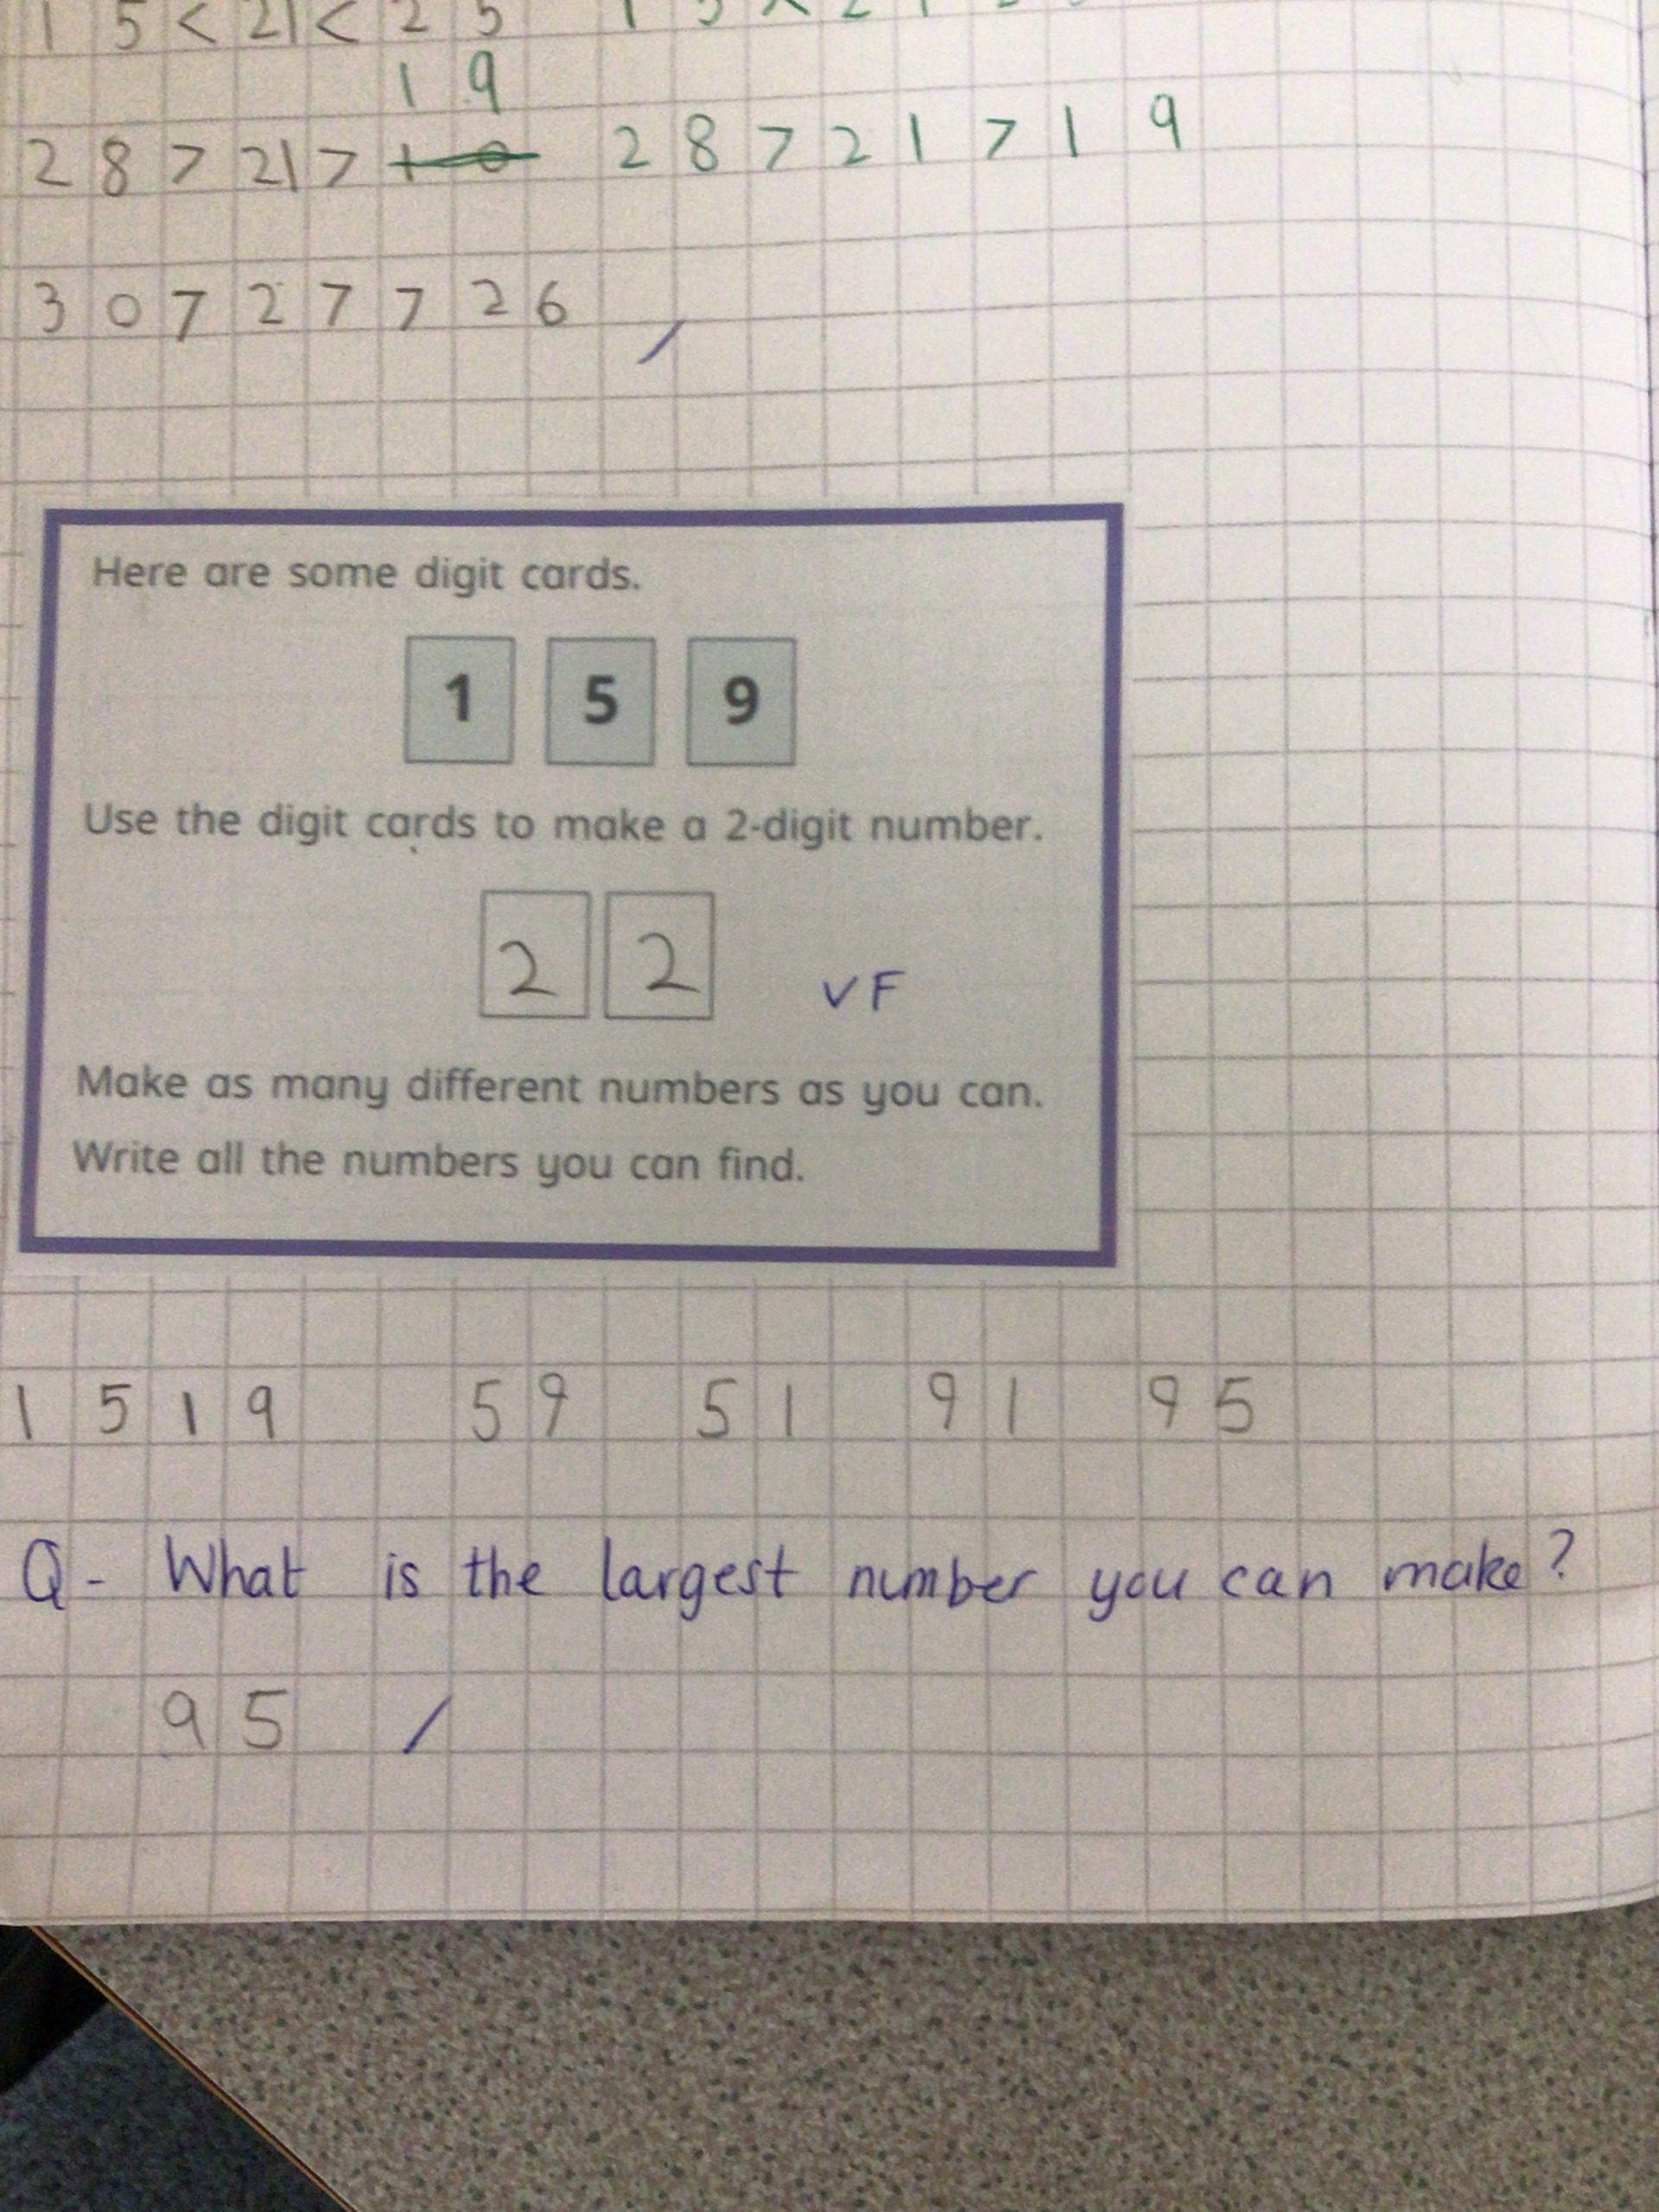 1 5 < 21 < 2 5
1 9
2 8 > 21 > 2 8 > 2 1 > 1 9
3 0 > 2 7 > 2 6
Here are some digit cards.
1 5 9
Use the digit cards to make a 2-digit number.
2 2 VF
Make as many different numbers as you can.
Write all the numbers you can find.
1 5 1 9 5 9 5 1 9 1 9 5
Q - What is the largest number you can make?
9 5